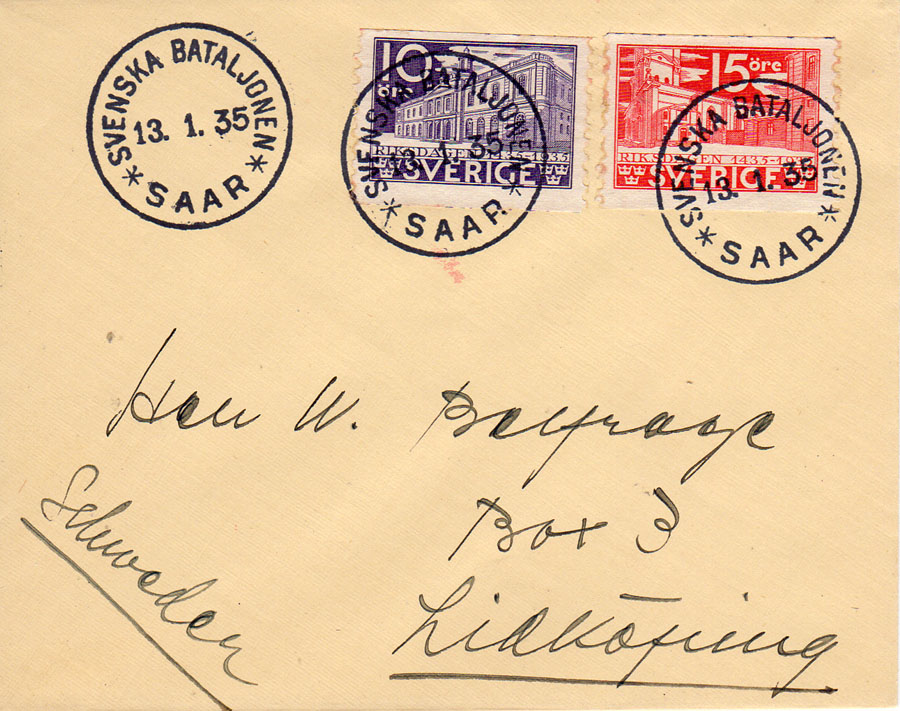 SVENSKA BATALJONEN
13. 1. 35
* SAAR *
10
öre
RIKSDAGEN 1435-1935
SVERIGE
SVENSKA BATALJONEN
13. 1. 35
* SAAR *
15 öre
RIKSDAGEN 1435-1935
SVERIGE
SVENSKA BATALJONEN
13. 1. 35
* SAAR *
Herr W. Belfrage
Box 3
Lidköping
Schweden